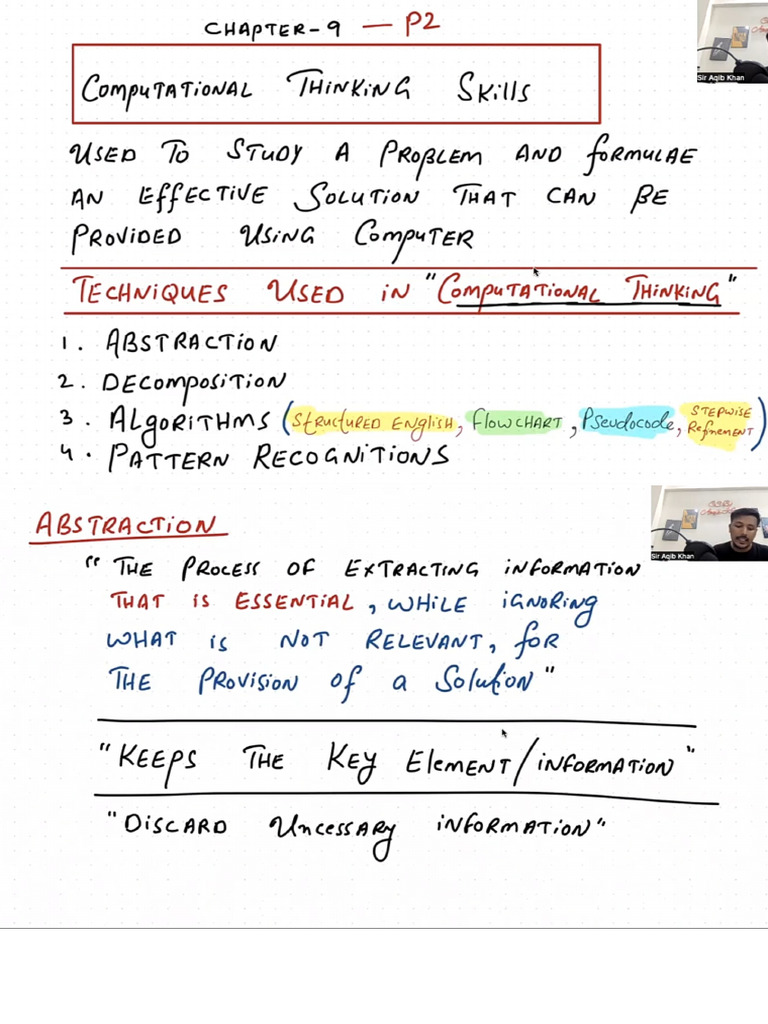 CHAPTER-9 — P2
Sir Aqib Khan
COMPUTATIONAL THINKING SKILLS
USED TO STUDY A PROBLEM AND FORMULAE
AN EFFECTIVE SOLUTION THAT CAN BE
PROVIDED USING COMPUTER
TECHNIQUES USED IN "COMPUTATIONAL THINKING"
1. ABSTRACTION
2. DECOMPOSITION
3. ALGORITHMS (STRUCTURED ENGLISH, FLOWCHART, PSEUDOCODE, STEPWISE REFINEMENT)
4. PATTERN RECOGNITIONS
ABSTRACTION
Sir Aqib Khan
"THE PROCESS OF EXTRACTING INFORMATION
THAT IS ESSENTIAL, WHILE IGNORING
WHAT IS NOT RELEVANT, FOR
THE PROVISION OF A SOLUTION"
"KEEPS THE KEY ELEMENT/INFORMATION"
"DISCARD UNCESSARY INFORMATION"